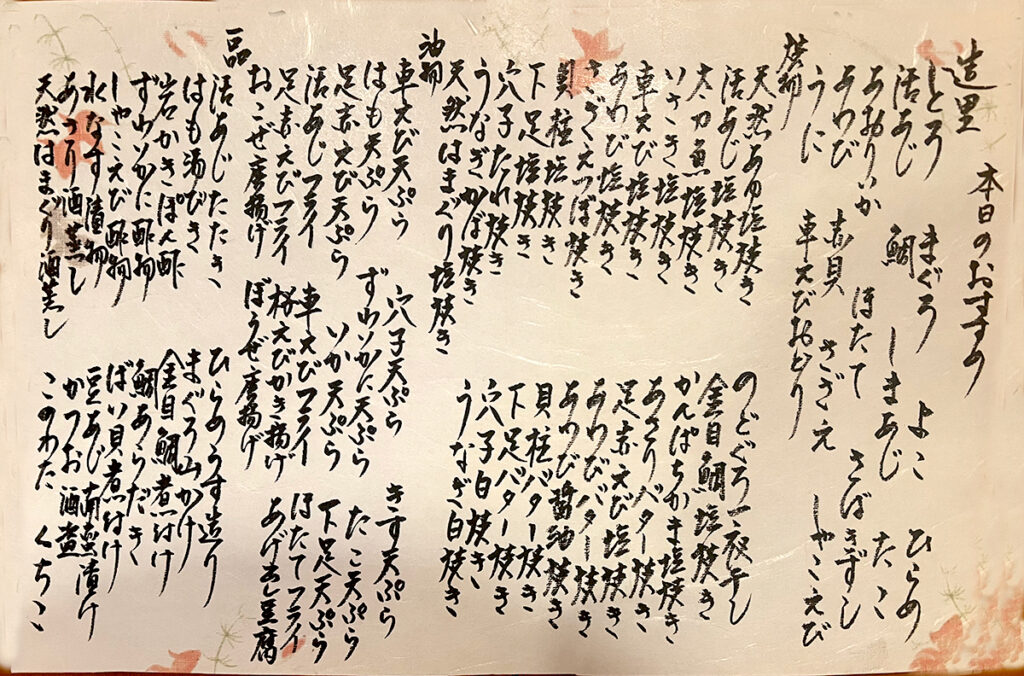 本日のおすすめ
造里
しとろ まぐろ よこ ひらめ
活あじ 鯛 しまあじ たこ
あおりいか ほたて さばきずし
あわび 赤貝 さざえ しゃこえび
うに 車えびおどり
焼物
天然あゆ塩焼き のどぐろ一夜干し
活あじ塩焼き 金目鯛塩焼き
太刀魚塩焼き かんぱちかま塩焼き
いさき塩焼き あさりバター焼き
車えび塩焼き 足赤えび塩焼き
あわび塩焼き あわびバター焼き
さざえつぼ焼き あわび醤油焼き
貝柱塩焼き 貝柱バター焼き
下足塩焼き 下足バター焼き
穴子たれ焼き 穴子白焼き
うなぎかば焼き うなぎ白焼き
天然はまぐり塩焼き
油物
車えび天ぷら 穴子天ぷら きす天ぷら
はも天ぷら ずわいかに天ぷら たこ天ぷら
足赤えび天ぷら いか天ぷら 下足天ぷら
活あじフライ 車えびフライ ほたてフライ
足赤えびフライ 桜えびかき揚げ あげ出し豆腐
おこぜ唐揚げ ぼうぜ唐揚げ
一品
活あじたたき ひらめうす造り
はも湯びき まぐろ山かけ
岩かきぽん酢 金目鯛煮付け
ずわいかに酢物 鯛あらだき
しゃこえび酢物 ばい貝煮付け
水なす漬物 豆あじ南蛮漬け
あさり酒蒸し かつお酒盗
天然はまぐり酒蒸し このわた くちこ